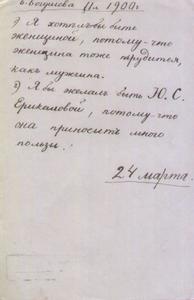 11л. 1900г.
1) Я хотѣлъ бы быть
женщиной, потому-что
женщина тоже трудится,
какъ мужчина.
2) Я бы желалъ быть Ю. С.
Ерикаловой, потому-что
она приноситъ много
пользы.
24 марта.